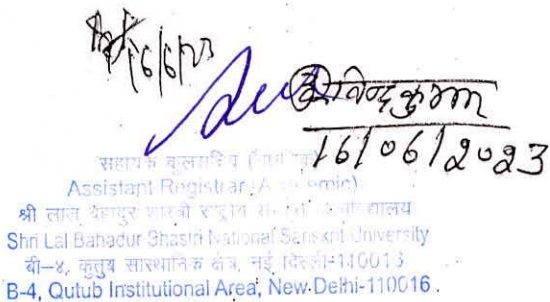 16/6/23
रविन्द्र कुमार
16/06/2023
सहायक कुलसचिव
Assistant Registrar (Academic)
श्री लाल बहादुर शास्त्री राष्ट्रीय संस्कृत विश्वविद्यालय
Shri Lal Bahadur Shastri National Sanskrit University
बी-४, कुतुब सांस्थानिक क्षेत्र, नई दिल्ली-110016
B-4, Qutub Institutional Area, New Delhi-110016.